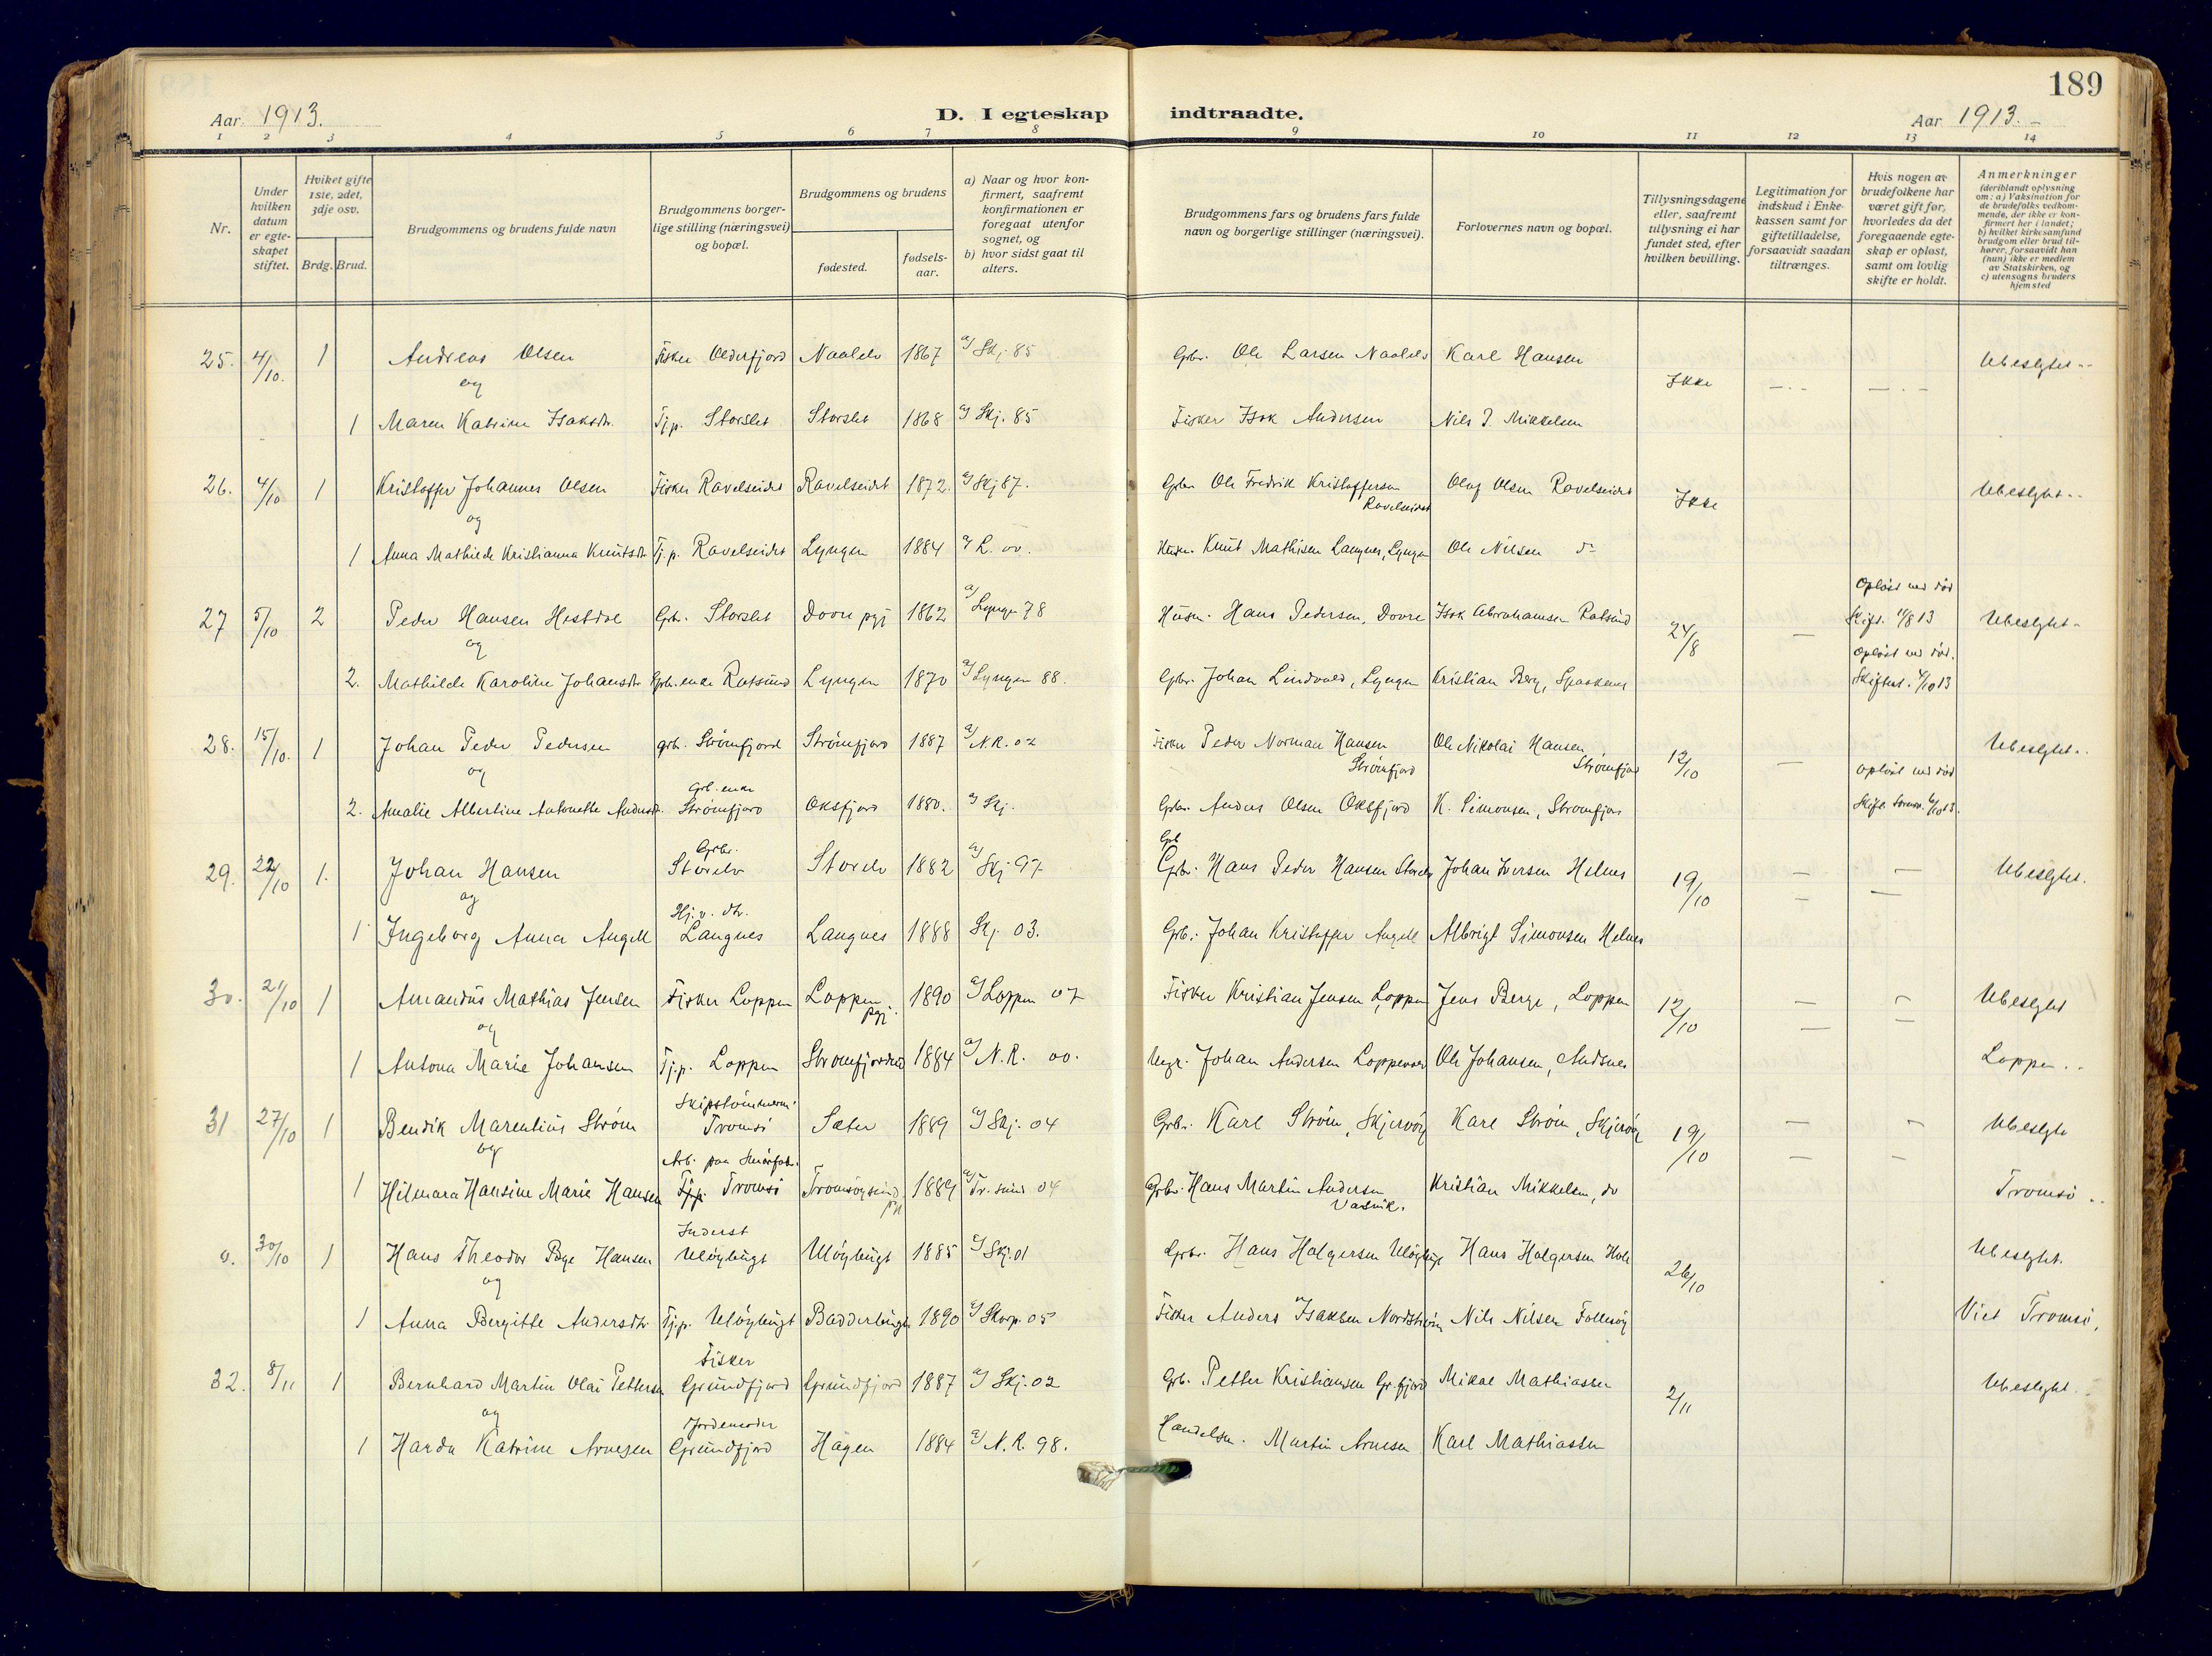 189
Aar 1913. D. I egteskap indtraadte. Aar 1913.
1 2 3 4 5 6 7 8 9 10 11 12 13 14
Nr.
Under hvilken datum er egte-skapet stiftet.
Hviket gifte 1ste, 2det, 3dje osv.
Brdg. Brud.
Brudgommens og brudens fulde navn
Brudgommens borger-lige stilling (næringsvei) og bopæl.
Brudgommens og brudens
fødested.
fødsels-aar.
a) Naar og hvor kon-firmert, saafremt konfirmationen er foregaat utenfor sognet, og
b) hvor sidst gaat til alters.
Brudgommens fars og brudens fars fulde navn og borgerlige stillinger (næringsvei).
Forlovernes navn og bopæl.
Tillysningsdagene eller, saafremt tillysning ei har fundet sted, efter hvilken bevilling.
Legitimation for indskud i Enke-kassen samt for giftetilladelse, forsaavidt saadan tiltrænges.
Hvis nogen av brudefolkene har været gift før, hvorledes da det foregaaende egte-skap er opløst, samt om lovlig skifte er holdt.
Anmerkninger (deriblandt oplysning om: a) Vaksination for de brudefolks vedkom-mende, der ikke er kon-firmert her i landet; b) hvilket kirkesamfund brudgom eller brud til-hører, forsaavidt han (hun) ikke er medlem av Statskirken, og c) utensogns bruders hjemsted
25. 4/10. 1 Andreas Olsen Fisker Olderfjord Naalelv 1867 a) Skj. 85 Grbr. Ole Larsen Naalelv Karl Hansen Ubeslgtet
og Ikke
1 Maren Katrine Isaksdtr. Tj.p. Storslet Storslet 1868 a) Skj. 85 Fisker Isak Andersen Nils J. Mikkelsen
26. 4/10 1 Kristoffer Johannes Olsen Fisker Ravelseidet Ravelseidet 1872. a) Skj 87. Grbr Ole Fredrik Kristoffersen Ravelseidet Olaf Olsen Ravelseidet Ubeslgtet
og Ikke
1 Anna Mathilde Kristianna Knutsdtr Tj.p. Ravelseidet Lyngen 1884 a) L. 00. Husm. Knut Mathisen Langnes, Lyngen Ole Nilsen do
27 5/10 2 Peder Hansen Hestdal Grbr. Storslet Dovre pgj 1862 a) Lyngen 78 Husm. Hans Pedersen, Dovre Isak Abrahamsen Rotsund Opløst ved død Ubeslgtet
og 24/8
2. Mathilde Karoline Johansdtr Grbr. enke Rotsund Lyngen 1870 a) Lyngen 88. Grbr. Johan Lindvald, Lyngen Kristian Berg, Spaakenes opløst ved død. Skiftet. 4/10 13
28. 15/10. 1 Johan Peder Pedersen grb. Strømfjord Strømfjord 1887 a) N.R. 02 Fisker Peder Norman Hansen Strømfjord Ole Nikolai Hansen, Strømfjord Ubeslgtet
og 12/10
2. Amalie Albertine Antonette Andersdtr. Grb. enke Strømfjord Oksfjord 1880. a) Skj. Grbr. Anders Olsen Oksfjord K. Simonsen, Strømfjord opløst ved død
29. 22/10 1. Johan Hansen Grbr. Storelv Storelv 1882 a) Skj 97 Grbr. Hans Peder Hansen Storelv Johan Iversen Helnes Ubeslgtet.
og 19/10
1 Ingeborg Anna Angell Hj.v. dtr. Langnes Langnes 1888 Skj 03. Grb. Johan Kristoffer Angell Albrigt Simonsen Helnes
30. 21/10 1 Amandus Mathias Jensen Fisker Loppen Loppen pgj. 1890 a) Loppen 07 Fisker Kristian Jensen Loppen Jens Berge, Loppen Ubeslgtet
og 12/10
1 Antona Marie Johansen Tj.p. Loppen 1884 a) N.R. 00. Johan Andersen Ole Johansen, Andsnes Loppen
31 27/10 1 Bendik Marentius Strøm Skipstømmerm. Tromsø Sæter 1889 a) Skj. 04 Grbr. Karl Strøm, Skjervøy Karl Strøm, Skjervøy Ubeslgtet
og 19/10
1 Hilmara Hansine Marie Hansen Tj.p. Tromsø Tromsøysund pgj 1889 a) Tr.sund 04 Grbr. Hans Martin Andersen Vasvik. Kristian Mikkelsen, do Tromsø
0. 30/10 1 Hans Theodor Bye Hansen Inderst Uløybugt Uløybugt 1885 a) Skj. 01 Grbr. Hans Holgersen Uløybugt Hans Holgersen Ubeslgtet.
og 26/10
1 Anna Bergitte Andersdtr Tj.p. Uløybugt Badderbugt 1890 a) Skorp. 05 Fisker Anders Isaksen Nordstrøm Nils Nilsen Follesøy Viet Tromsø,
32. 8/11 1 Bernhard Martin Olai Pettersen Fisker Grundfjord Grundfjord 1887 a) Skj. 02 Grb. Petter Kristiansen Gr.fjord Mikal Mathiassen Ubeslgtet
og 2/11
1 Harda Katrine Arnesen Jordemoder Grundfjord Hagen 1884 a) N.R. 98. Handelsm. Martin Arnesen Karl Mathiassen